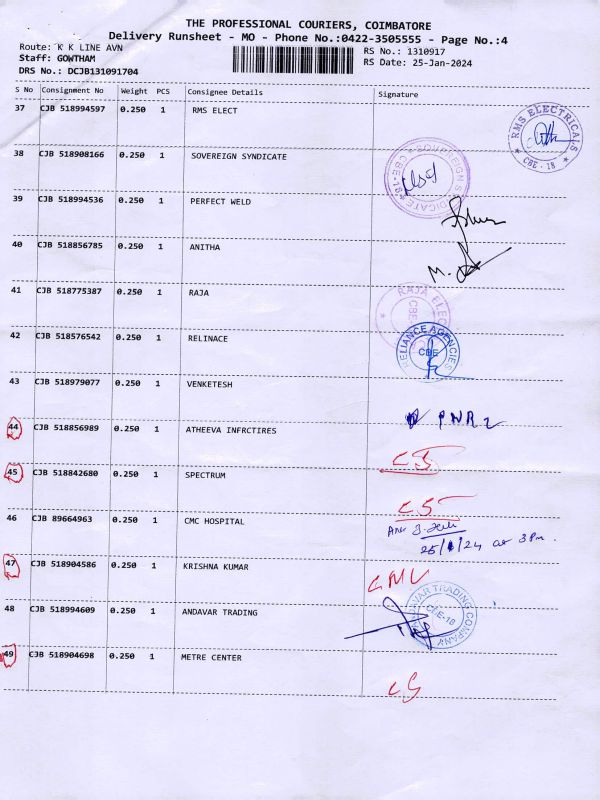 THE PROFESSIONAL COURIERS, COIMBATORE
Delivery Runsheet - MO - Phone No.:0422-3505555 - Page No.:4
Route: K K LINE AVN
RS No.: 1310917
Staff: GOWTHAM
RS Date: 25-Jan-2024
DRS No.: DCJB131091704
S No Consignment No Weight PCS Consignee Details Signature
37 CJB 518994597 0.250 1 RMS ELECT
RMS ELECTRICALS
CBE - 18
38 CJB 518908166 0.250 1 SOVEREIGN SYNDICATE
SOVEREIGN SYNDICATE CBE-18
39 CJB 518994536 0.250 1 PERFECT WELD
40 CJB 518856785 0.250 1 ANITHA
M.
41 CJB 518775387 0.250 1 RAJA
RAJA ELEC
CBE
42 CJB 518576542 0.250 1 RELINACE
RELIANCE AGENCIES
CBE
43 CJB 518979077 0.250 1 VENKETESH
PNR2
44 CJB 518856989 0.250 1 ATHEEVA INFRCTIRES
45 CJB 518842680 0.250 1 SPECTRUM
46 CJB 89664963 0.250 1 CMC HOSPITAL
25/1/24 at 3pm.
47 CJB 518904586 0.250 1 KRISHNA KUMAR
48 CJB 518994609 0.250 1 ANDAVAR TRADING
ANDAVAR TRADING COMPANY
CBE-18
49 CJB 518904698 0.250 1 METRE CENTER